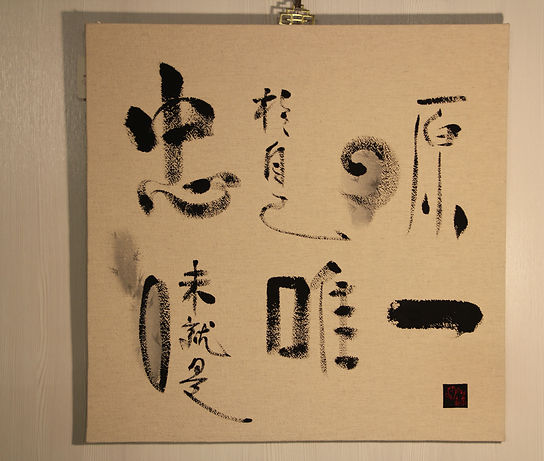 忠於自己の原
味就是唯一